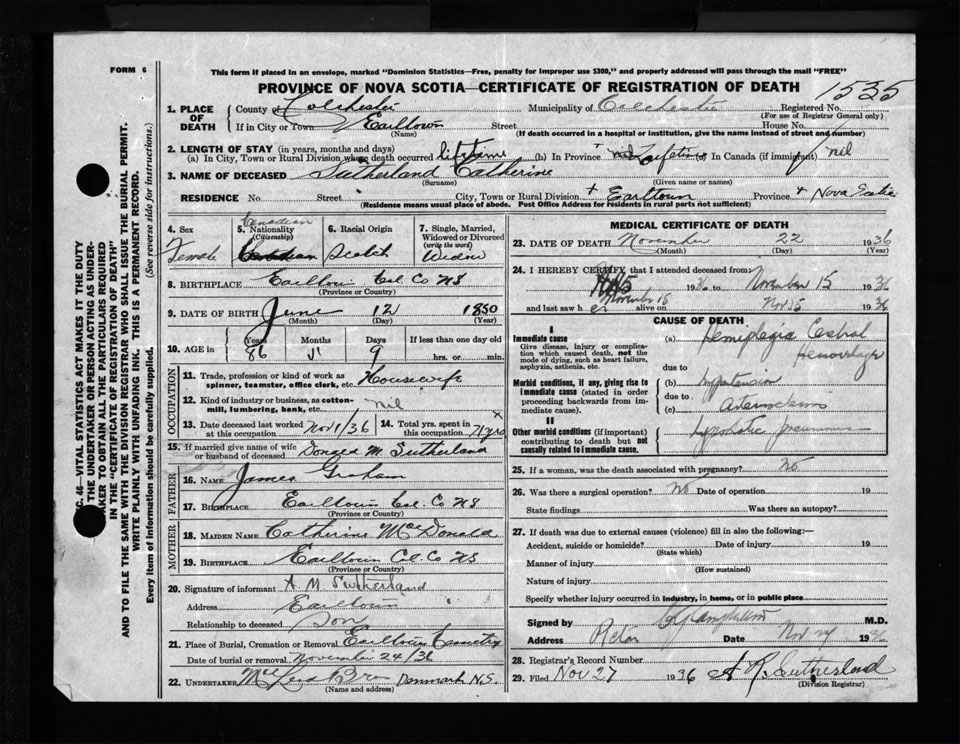 FORM 6
This form if placed in an envelope, marked "Dominion Statistics—Free, penalty for improper use $300," and properly addressed will pass through the mail "FREE"
PROVINCE OF NOVA SCOTIA—CERTIFICATE OF REGISTRATION OF DEATH
1535
1. PLACE OF DEATH
County of Colchester
Municipality of Colchester
Registered No.
(For use of Registrar General only)
If in City or Town Earltown Street House No.
(Name) (If death occurred in a hospital or institution, give the name instead of street and number)
2. LENGTH OF STAY (in years, months and days)
(a) In City, Town or Rural Division where death occurred lifetime (b) In Province Lifetime (c) In Canada (if immigrant) nil
3. NAME OF DECEASED Sutherland Catherine
(Surname) (Given name or names)
RESIDENCE No. Street City, Town or Rural Division Earltown Province Nova Scotia
(Residence means usual place of abode. Post Office Address for residents in rural parts not sufficient)
4. Sex
Female
5. Nationality
(Citizenship)
Canadian
6. Racial Origin
Scotch
7. Single, Married, Widowed or Divorced
(write the word)
Widow
8. BIRTHPLACE Earltown Col Co NS
(Province or Country)
9. DATE OF BIRTH June 12 1850
(Month) (Day) (Year)
10. AGE in
Years Months Days If less than one day old
86 5 9 hrs. or min.
OCCUPATION
11. Trade, profession or kind of work as spinner, teamster, office clerk, etc. Housewife
12. Kind of industry or business, as cotton-mill, lumbering, bank, etc. nil
13. Date deceased last worked at this occupation Nov 1/36
14. Total yrs. spent in this occupation
15. If married give name of wife or husband of deceased M. Sutherland
FATHER
16. NAME James Graham
17. BIRTHPLACE Earltown Col. Co NS
(Province or Country)
MOTHER
18. MAIDEN NAME Catherine McDonald
19. BIRTHPLACE Earltown Cl. Co NS
(Province or Country)
20. Signature of informant A. M. Sutherland
Address Earltown
Relationship to deceased Son
21. Place of Burial, Cremation or Removal Earltown Cemetery
Date of burial or removal November 24/36
22. UNDERTAKER Bros Denmark N.S.
(Name and address)
MEDICAL CERTIFICATE OF DEATH
23. DATE OF DEATH November 22 1936
(Month) (Day) (Year)
24. I HEREBY CERTIFY that I attended deceased from:
1936 to November 15 1936
and last saw her alive on Nov 15 1936
November 15
CAUSE OF DEATH
I
Immediate cause
Give disease, injury or complication which caused death, not the mode of dying, such as heart failure, asphyxia, asthenia, etc.
(a) Hemiplegia Cerebral
Hemorrhage
due to
Morbid conditions, if any, giving rise to immediate cause (stated in order proceeding backwards from immediate cause).
(b) Hypertension
due to
(c)
II
Other morbid conditions (if important) contributing to death but not causally related to immediate cause.
Hypostatic pneumonia
25. If a woman, was the death associated with pregnancy? No
26. Was there a surgical operation? No Date of operation 19
State findings Was there an autopsy?
27. If death was due to external causes (violence) fill in also the following:—
Accident, suicide or homicide? Date of injury 19
(State which)
Manner of injury
(How sustained)
Nature of injury
Specify whether injury occurred in industry, in home, or in public place
Signed by M.D.
Address Date Nov 1936
28. Registrar's Record Number
29. Filed Nov 27 1936 A R Sutherland
(Division Registrar)
C. 46—VITAL STATISTICS ACT MAKES IT THE DUTY
THE UNDERTAKER OR PERSON ACTING AS UNDER-
TAKER TO OBTAIN ALL THE PARTICULARS REQUIRED
IN THE "CERTIFICATE OF REGISTRATION OF DEATH"
AND TO FILE THE SAME WITH THE DIVISION REGISTRAR WHO SHALL ISSUE THE BURIAL PERMIT.
WRITE PLAINLY WITH UNFADING INK. THIS IS A PERMANENT RECORD.
Every item of information should be carefully supplied. (See reverse side for instructions.)